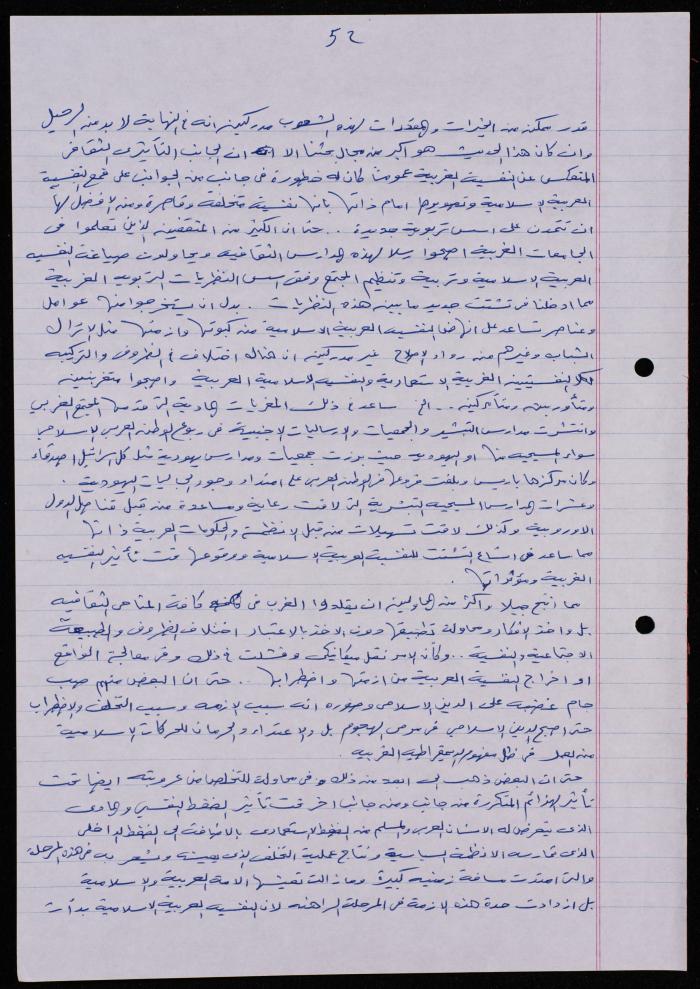 52
قدر ممكن من الخيرات والمقدرات لهذه الشعوب مدركين انه في النهاية لا بد من الرحيل
وان كان هذا الحديث هو اكبر من مجال بحثنا الا ان الجانب التأثيري الثقافي
المنعكس عن النفسية الغربية عموماً كان له خطورة في جانب من الجوانب على قمع النفسية
العربية الاسلامية وتصويرها امام ذاتها بانها نفسية متخلفة وقاصرة ومن الافضل لها
ان تتمدن على اسس تربوية جديدة .. حتى ان الكثير من المثقفين الذين تعلموا في
الجامعات الغربية اصبحوا رسلا لهذه المدارس الثقافية ويحاولون صياغة النفسيه
العربية الاسلامية وتربية وتنظيم المجتمع وفق اسس النظريات التربوية الغربية
مما ادخلنا في تشتت جديد ما بين هذه النظريات . بدل ان يستخرجوا منها عوامل
وعناصر تساعد على انهاض النفسيه العربية الاسلامية من كبوتها وازمتها مثل انزال
الشباب وغيرهم من رواد الاصلاح غير مدركين ان هناك اختلاف في الظروف والتركيبه
لكل النفسيتين الغربية الاستعمارية والنفسية الاسلامية العربية واصبحوا متغربنين
ومتأوربين ومتأمركين ... الخ ساعد في ذلك المغريات المادية التي قدمها المجتمع الغربي
وانتشرت مدارس التبشير والجمعيات والارساليات الاجنبية في ربوع الوطن العربي الاسلامي
سواء المسيحية منها او اليهودية حيث برزت جمعيات ومدارس يهودية مثل كل اسرائيل اصدقاء
وكان مركزها باريس وبلغت فروعها في الوطن العربي على امتداد وجود الجاليات اليهودية .
وعشرات المدارس المسيحية التبشرية التي لاقت رعاية ومساعدة من قبل قناصل الدول
الاوروبية وكذلك لاقت تسهيلات من قبل الانظمة والحكومات العربية ذاتها
مما ساعد في اتساع التشتت للنفسية العربية الاسلامية ووقوعها تحت تأثير النفسيه
الغربية ومؤثراتها .
مما انتج جيلا واكثر من المحاولين ان يقلدوا الغرب في كافة المناحي الثقافيه
بل واخذ الافكار ومحاولة تطبيقها دون الاخذ بالاعتبار اختلاف الظروف والطبيعة
الاجتماعية والنفسية .. وكأن الامر نقل ميكانيكي وفشلت في ذلك وفي معالجة الواقع
او اخراج النفسية العربية من ازمتها واضطرابها .. حتى ان البعض منهم صب
جام غضبه على الدين الاسلامي وصوره انه سبب الازمه وسبب التخلف والاضطراب
حتى اصبح الدين الاسلامي في مرمى الهجوم بل والاعتداء والحرمان للحركات الاسلامية
من العمل في ظل مفهوم الديمقراطيه الغربيه
حتى ان البعض ذهب الى ابعد من ذلك في محاولة للتخلص من عروبته ايضا تحت
تأثير الهزائم المتكررة من جانب ومن جانب اخر تحت تأثير الضغط النفسي والمادي
الذي يتعرض له الانسان العربي والمسلم من الضغط الاستعماري بالاضافة الى الضغط الداخلي
الذي تمارسه الانظمة السياسية ونتاج عملية التخلف الذي يعيشه ويشعر به في هذه المرحلة
والتي امتدت مسافة زمنيه كبيرة وما زالت تعيشها الامة العربية والاسلامية
بل ازدادت حدة هذه الازمة في المرحلة الراهنه لان النفسيه العربية الاسلامية بدأت